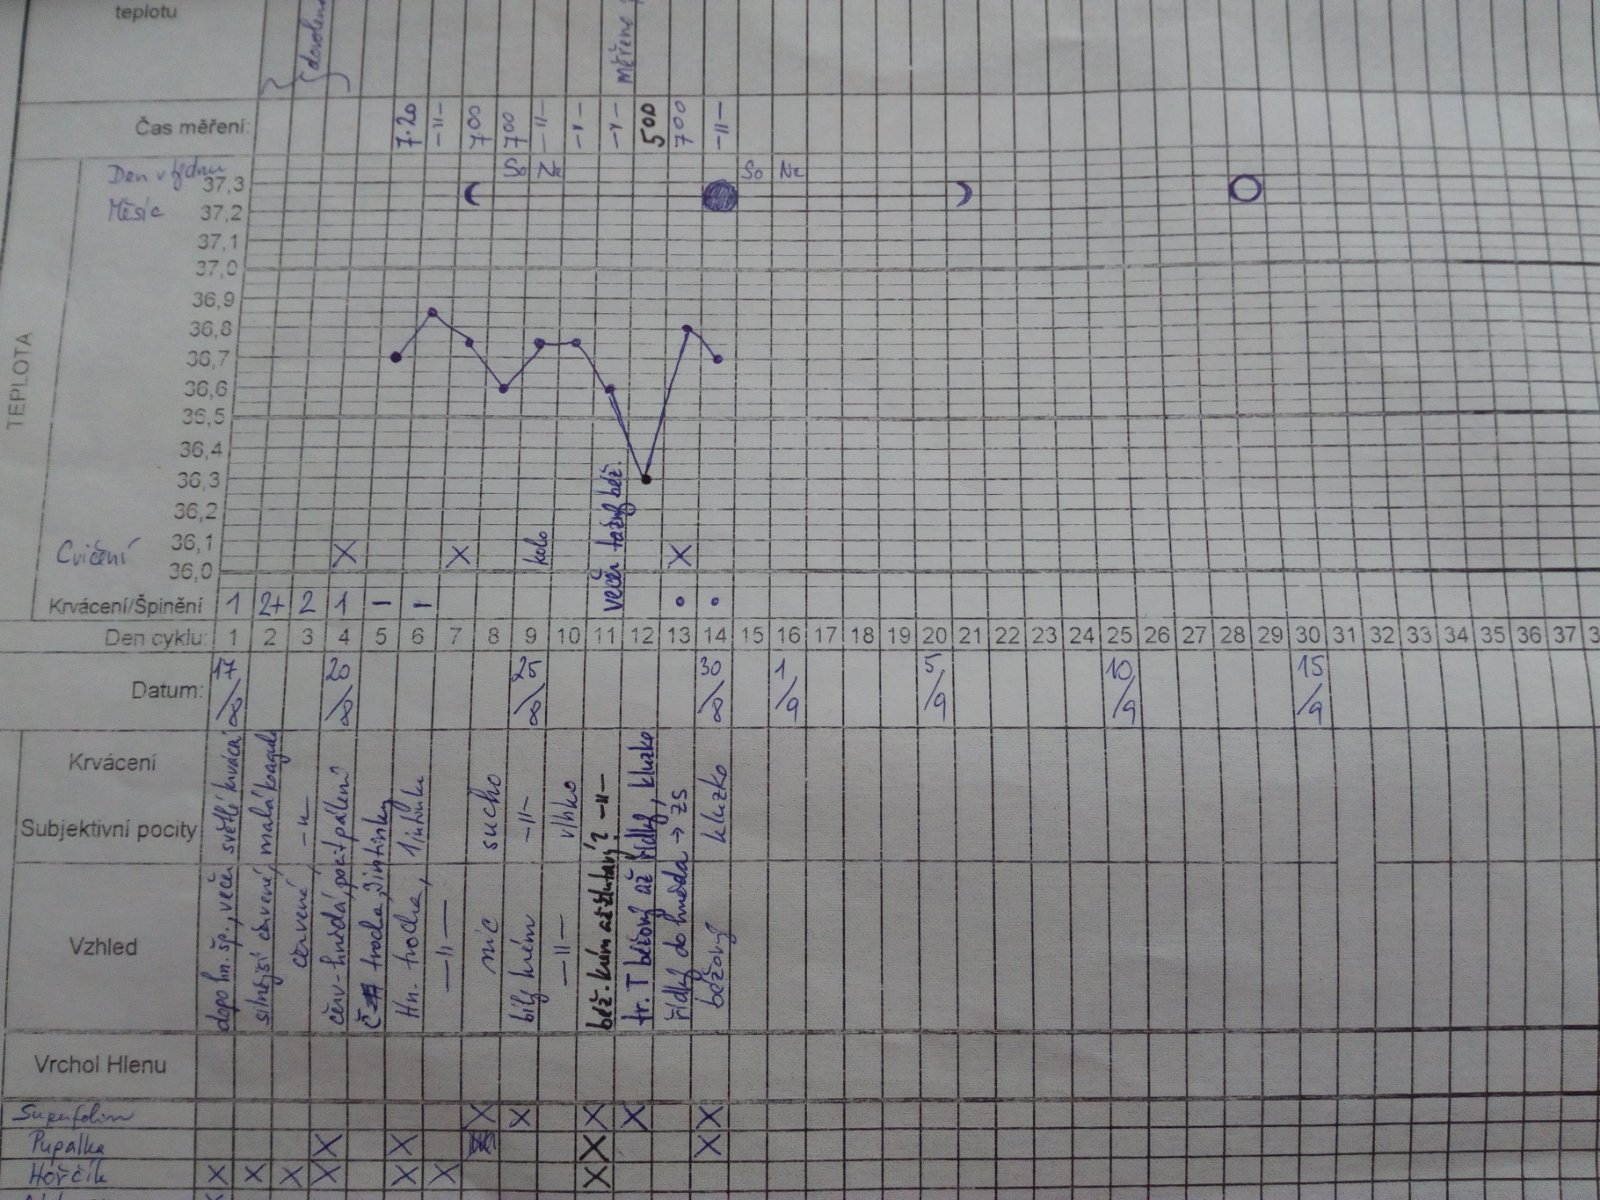 teplotu
(dovolená
měřeno
Čas měření: 7.20 -II- 700 700 -II- -II- -II- 500 700 -II-
Den v týdnu So Ne So Ne
Měsíc
TEPLOTA
37,3
37,2
37,1
37,0
36,9
36,8
36,7
36,6
36,5
36,4
36,3
36,2
36,1
36,0
Cvičení X X kolo X
večer tažný béž.
Krvácení/Špinění 1 2+ 2 1 – – • •
Den cyklu: 1 2 3 4 5 6 7 8 9 10 11 12 13 14 15 16 17 18 19 20 21 22 23 24 25 26 27 28 29 30 31 32 33 34 35 36 37 3
Datum: 17/8 20/8 25/8 30/8 1/9 5/9 10/9 15/9
Krvácení
Subjektivní pocity
Vzhled
dopo hn. šp., večer světlé krvácí
silnější červené, malá koagula
červené -II-
červ-hnědá, poč. pálení
trocha, 2 intimky
Hn. trocha, 1 intimka
-II-
sucho
nic
-II-
bílý krém
vlhko
-II-
béž. krém až žlutavý? -II-
tr. T béžový až řídký, kluzko
řídký do hněda → ZS
kluzko
béžový
Vrchol Hlenu
Superfolin X X X X X
Pupalka X X X X
Hořčík X X X X X X X